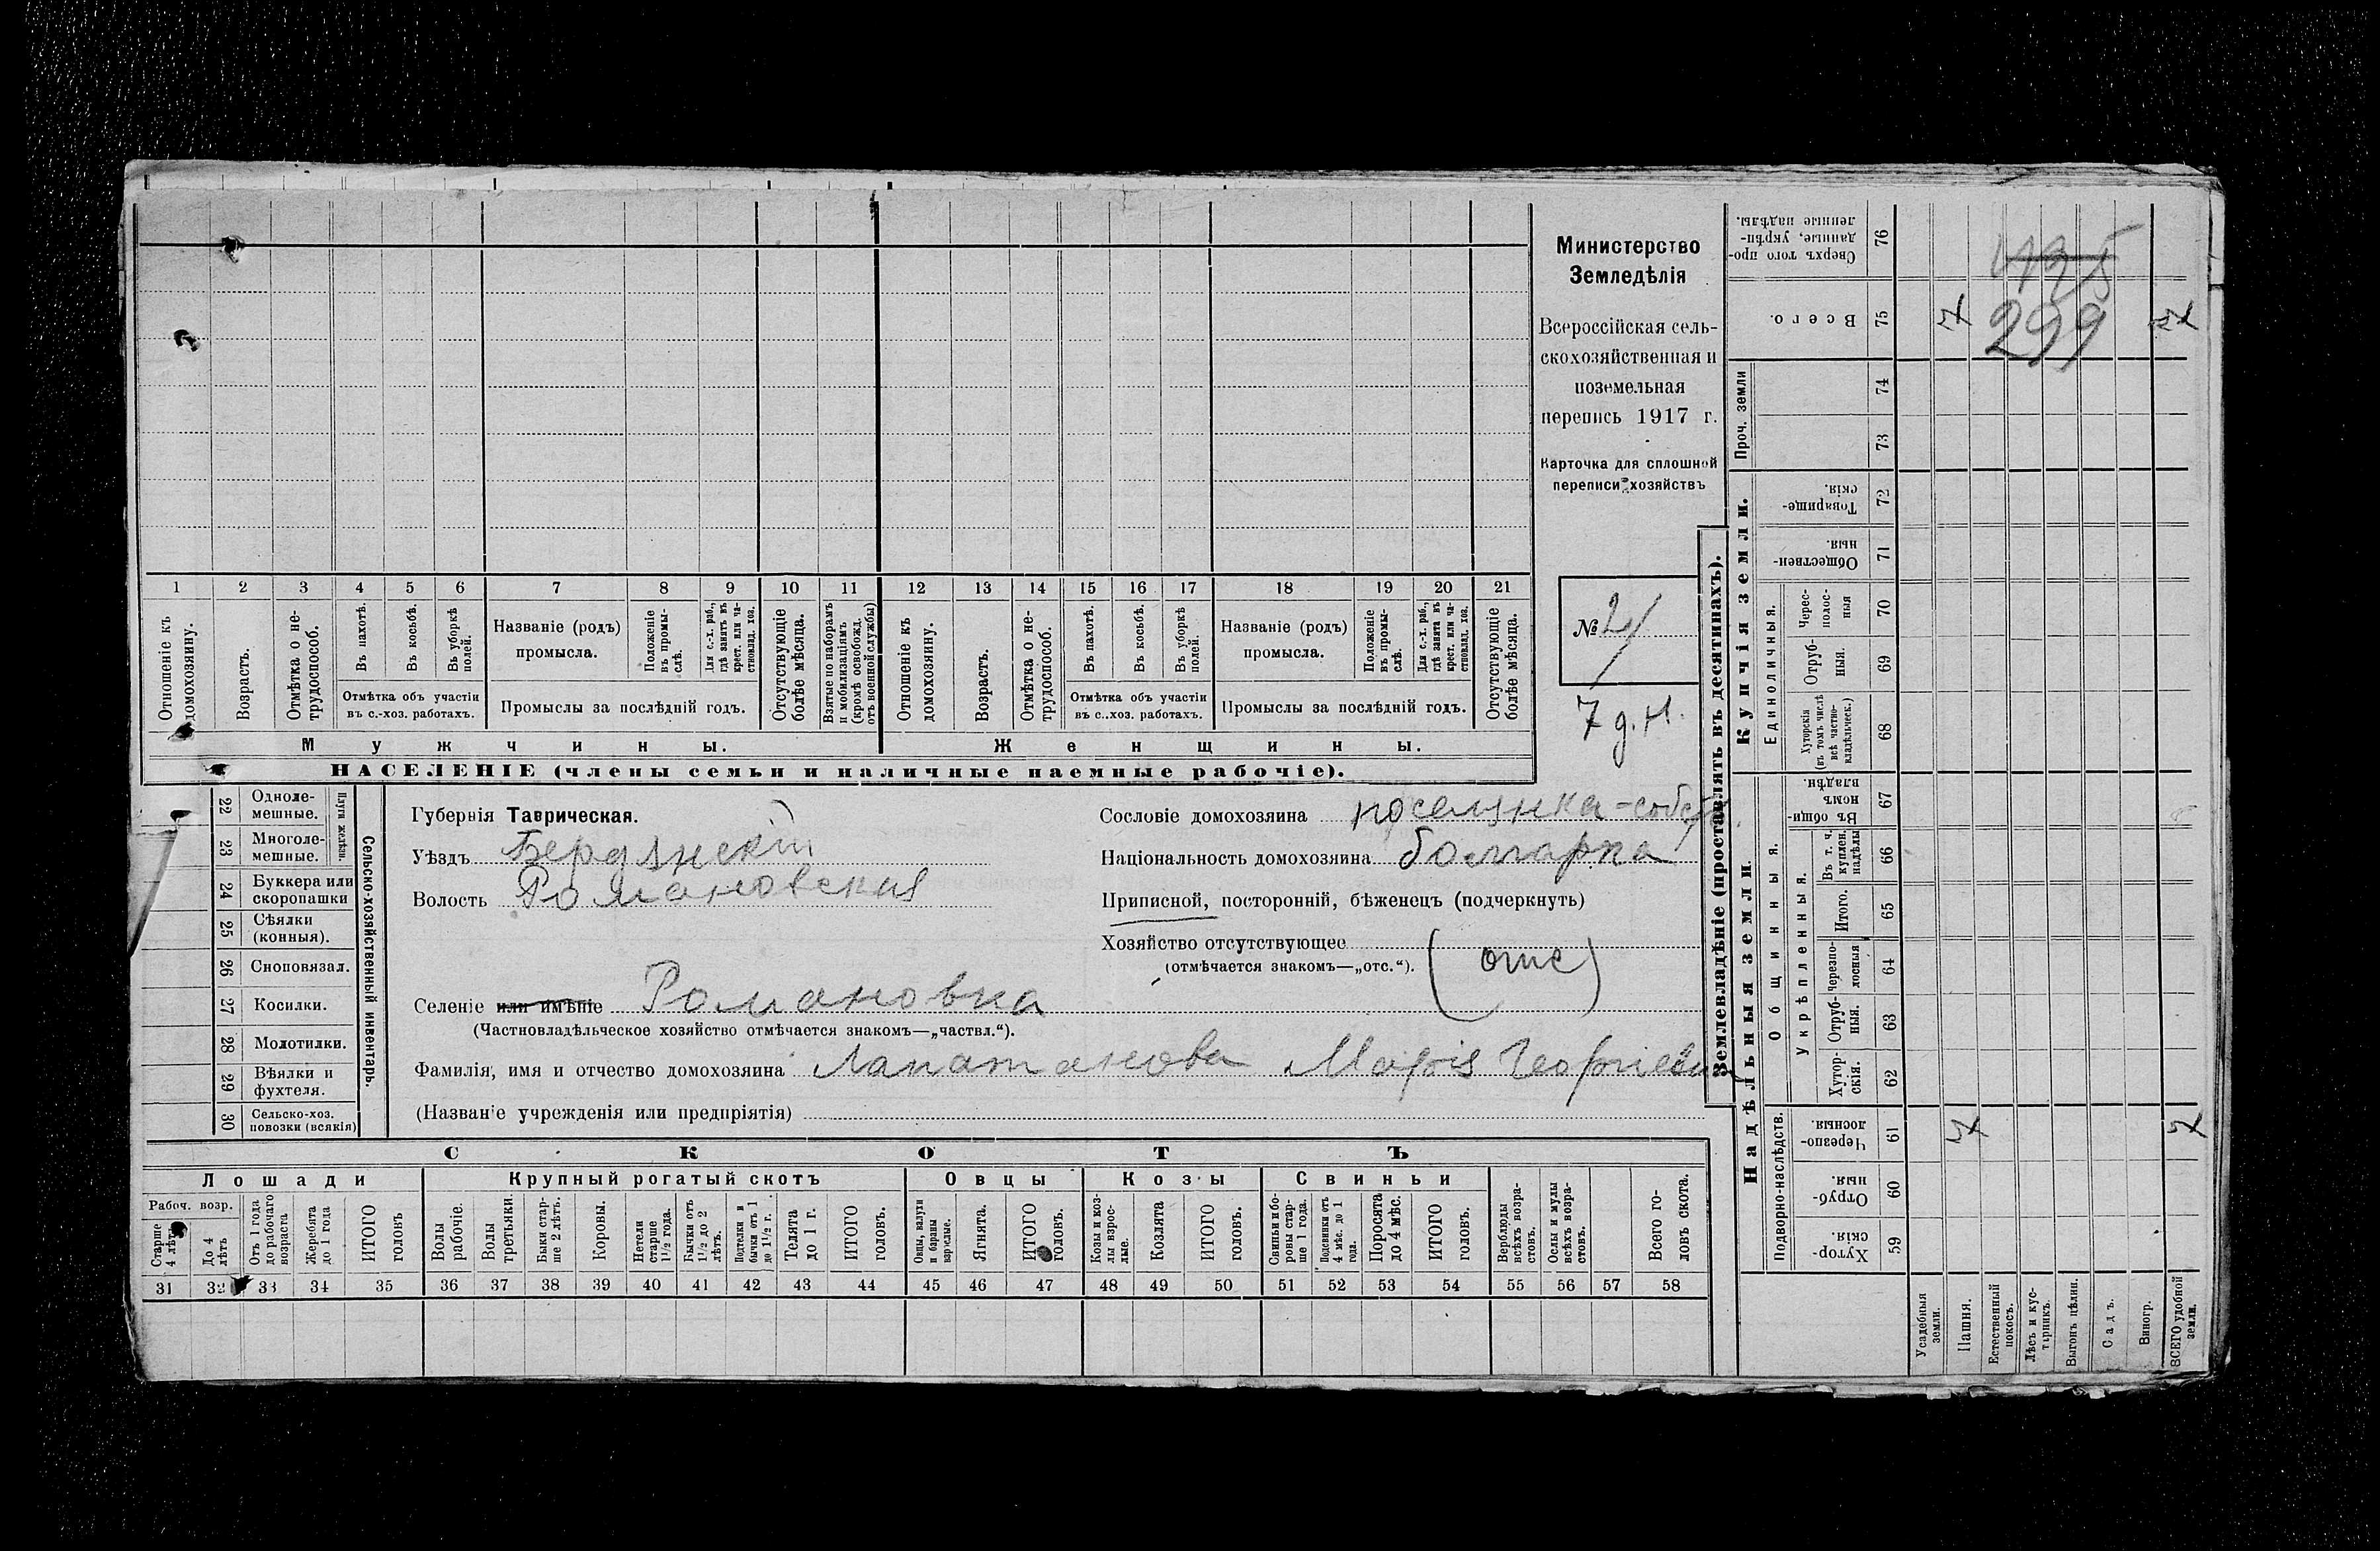 Министерство
Земледѣлія
Всероссійская сель-
скохозяйственная и
поземельная
перепись 1917 г.
Карточка для сплошной
переписи хозяйствъ
№ 2
7 д. н.
1 2 3 4 5 6 7 8 9 10 11 12 13 14 15 16 17 18 19 20 21
Отношеніе къ домохозяину.
Возрастъ.
Отмѣтка о не-трудоспособ.
Въ пахотѣ.
Въ косьбѣ.
Въ уборкѣ полей.
Отмѣтка объ участіи
въ с.-хоз. работахъ.
Названіе (родъ)
промысла.
Положеніе въ промы-слѣ.
Для с.-х. раб., гдѣ занятъ въ крест. или ча-стновлад. хоз.
Промыслы за послѣдній годъ.
Отсутствующіе болѣе мѣсяца.
Взятые по наборамъ и мобилизаціямъ (кромѣ освобожд. отъ военной службы)
Отношеніе къ домохозяину.
Возрастъ.
Отмѣтка о не-трудоспособ.
Въ пахотѣ.
Въ косьбѣ.
Въ уборкѣ полей.
Отмѣтка объ участіи
въ с.-хоз. работахъ.
Названіе (родъ)
промысла.
Положеніе въ промы-слѣ.
Для с.-х. раб., гдѣ занята въ крест. или ча-стновлад. хоз.
Промыслы за послѣдній годъ.
Отсутствующіе болѣе мѣсяца.
Мужчины.
Женщины.
НАСЕЛЕНІЕ (члены семьи и наличные наемные рабочіе).
22 Одноле-мешные.
23 Многоле-мешные.
Плуги желѣзн.
24 Буккера или скоропашки
25 Сѣялки (конныя).
26 Сноповязал.
27 Косилки.
28 Молотилки.
29 Вѣялки и фухтеля.
30 Сельско-хоз. повозки (всякія)
Сельско-хозяйственный инвентарь.
Губернія Таврическая.
Уѣздъ Бердянскій
Волость Романовская
Селеніе или имѣніе Романовка
(Частновладѣльческое хозяйство отмѣчается знакомъ—„частвл.“).
Фамилія, имя и отчество домохозяина Лапатанова Марія Георгіевна
(Названіе учрежденія или предпріятія)
Сословіе домохозяина поселянка-собств.
Національность домохозяина болгарка
Приписной, посторонній, бѣженецъ (подчеркнуть)
Хозяйство отсутствующее (отс)
(отмѣчается знакомъ—„отс.“).
СКОТЪ
Лошади Крупный рогатый скотъ Овцы Козы Свиньи
Рабоч. возр.
Старше 4 лѣтъ
До 4 лѣтъ
Отъ 1 года до рабочаго возраста
Жеребята до 1 года
ИТОГО головъ
Волы рабочіе.
Волы третьяки.
Быки стар-ше 2 лѣтъ.
Коровы.
Нетели старше 1½ года.
Бычки отъ 1½ до 2 лѣтъ.
Подтелки и бычки отъ 1 до 1½ г.
Телята до 1 г.
ИТОГО головъ.
Овцы, валухи и бараны взрослые.
Ягнята.
ИТОГО головъ.
Козы и коз-лы взрос-лые.
Козлята
ИТОГО головъ.
Свиньи и бо-ровы стар-ше 1 года.
Подсвинки отъ 4 мѣс. до 1 года.
Поросята до 4 мѣс.
ИТОГО головъ.
Верблюды всѣхъ возра-стовъ.
Ослы и мулы всѣхъ возра-стовъ.
Всего го-ловъ скота.
31 32 33 34 35 36 37 38 39 40 41 42 43 44 45 46 47 48 49 50 51 52 53 54 55 56 57 58
Землевладѣніе (проставлять въ десятинахъ).
Купчія земли.
Надѣльныя земли.
Сверхъ того про-данные, укрѣп-ленные надѣлы. 76
Всего. 75
Проч. земли 74 73
Товарище-скія. 72
Обществен-ныя. 71
Единоличныя.
Черес-полос-ныя 70
Отруб-ныя. 69
Хуторскія (въ томъ числѣ всѣ частно-владѣльческ.) 68
Общинныя.
Въ общин-номъ владѣн. 67
Укрѣпленныя.
Въ т. ч. куплен. надѣлы 66
Итого. 65
Черезпо-лосныя 64
Отруб-ныя. 63
Хутор-скія. 62
Подворно-наслѣдств.
Черезпо-лосныя. 61
Отруб-ныя. 60
Хутор-скія. 59
Усадебныя земли.
Пашня.
Естественный покосъ.
Лѣсъ и кус-тарникъ.
Выгонъ цѣлин.
Садъ.
Виногр.
ВСЕГО удобной земли.
299
7
7
7
7